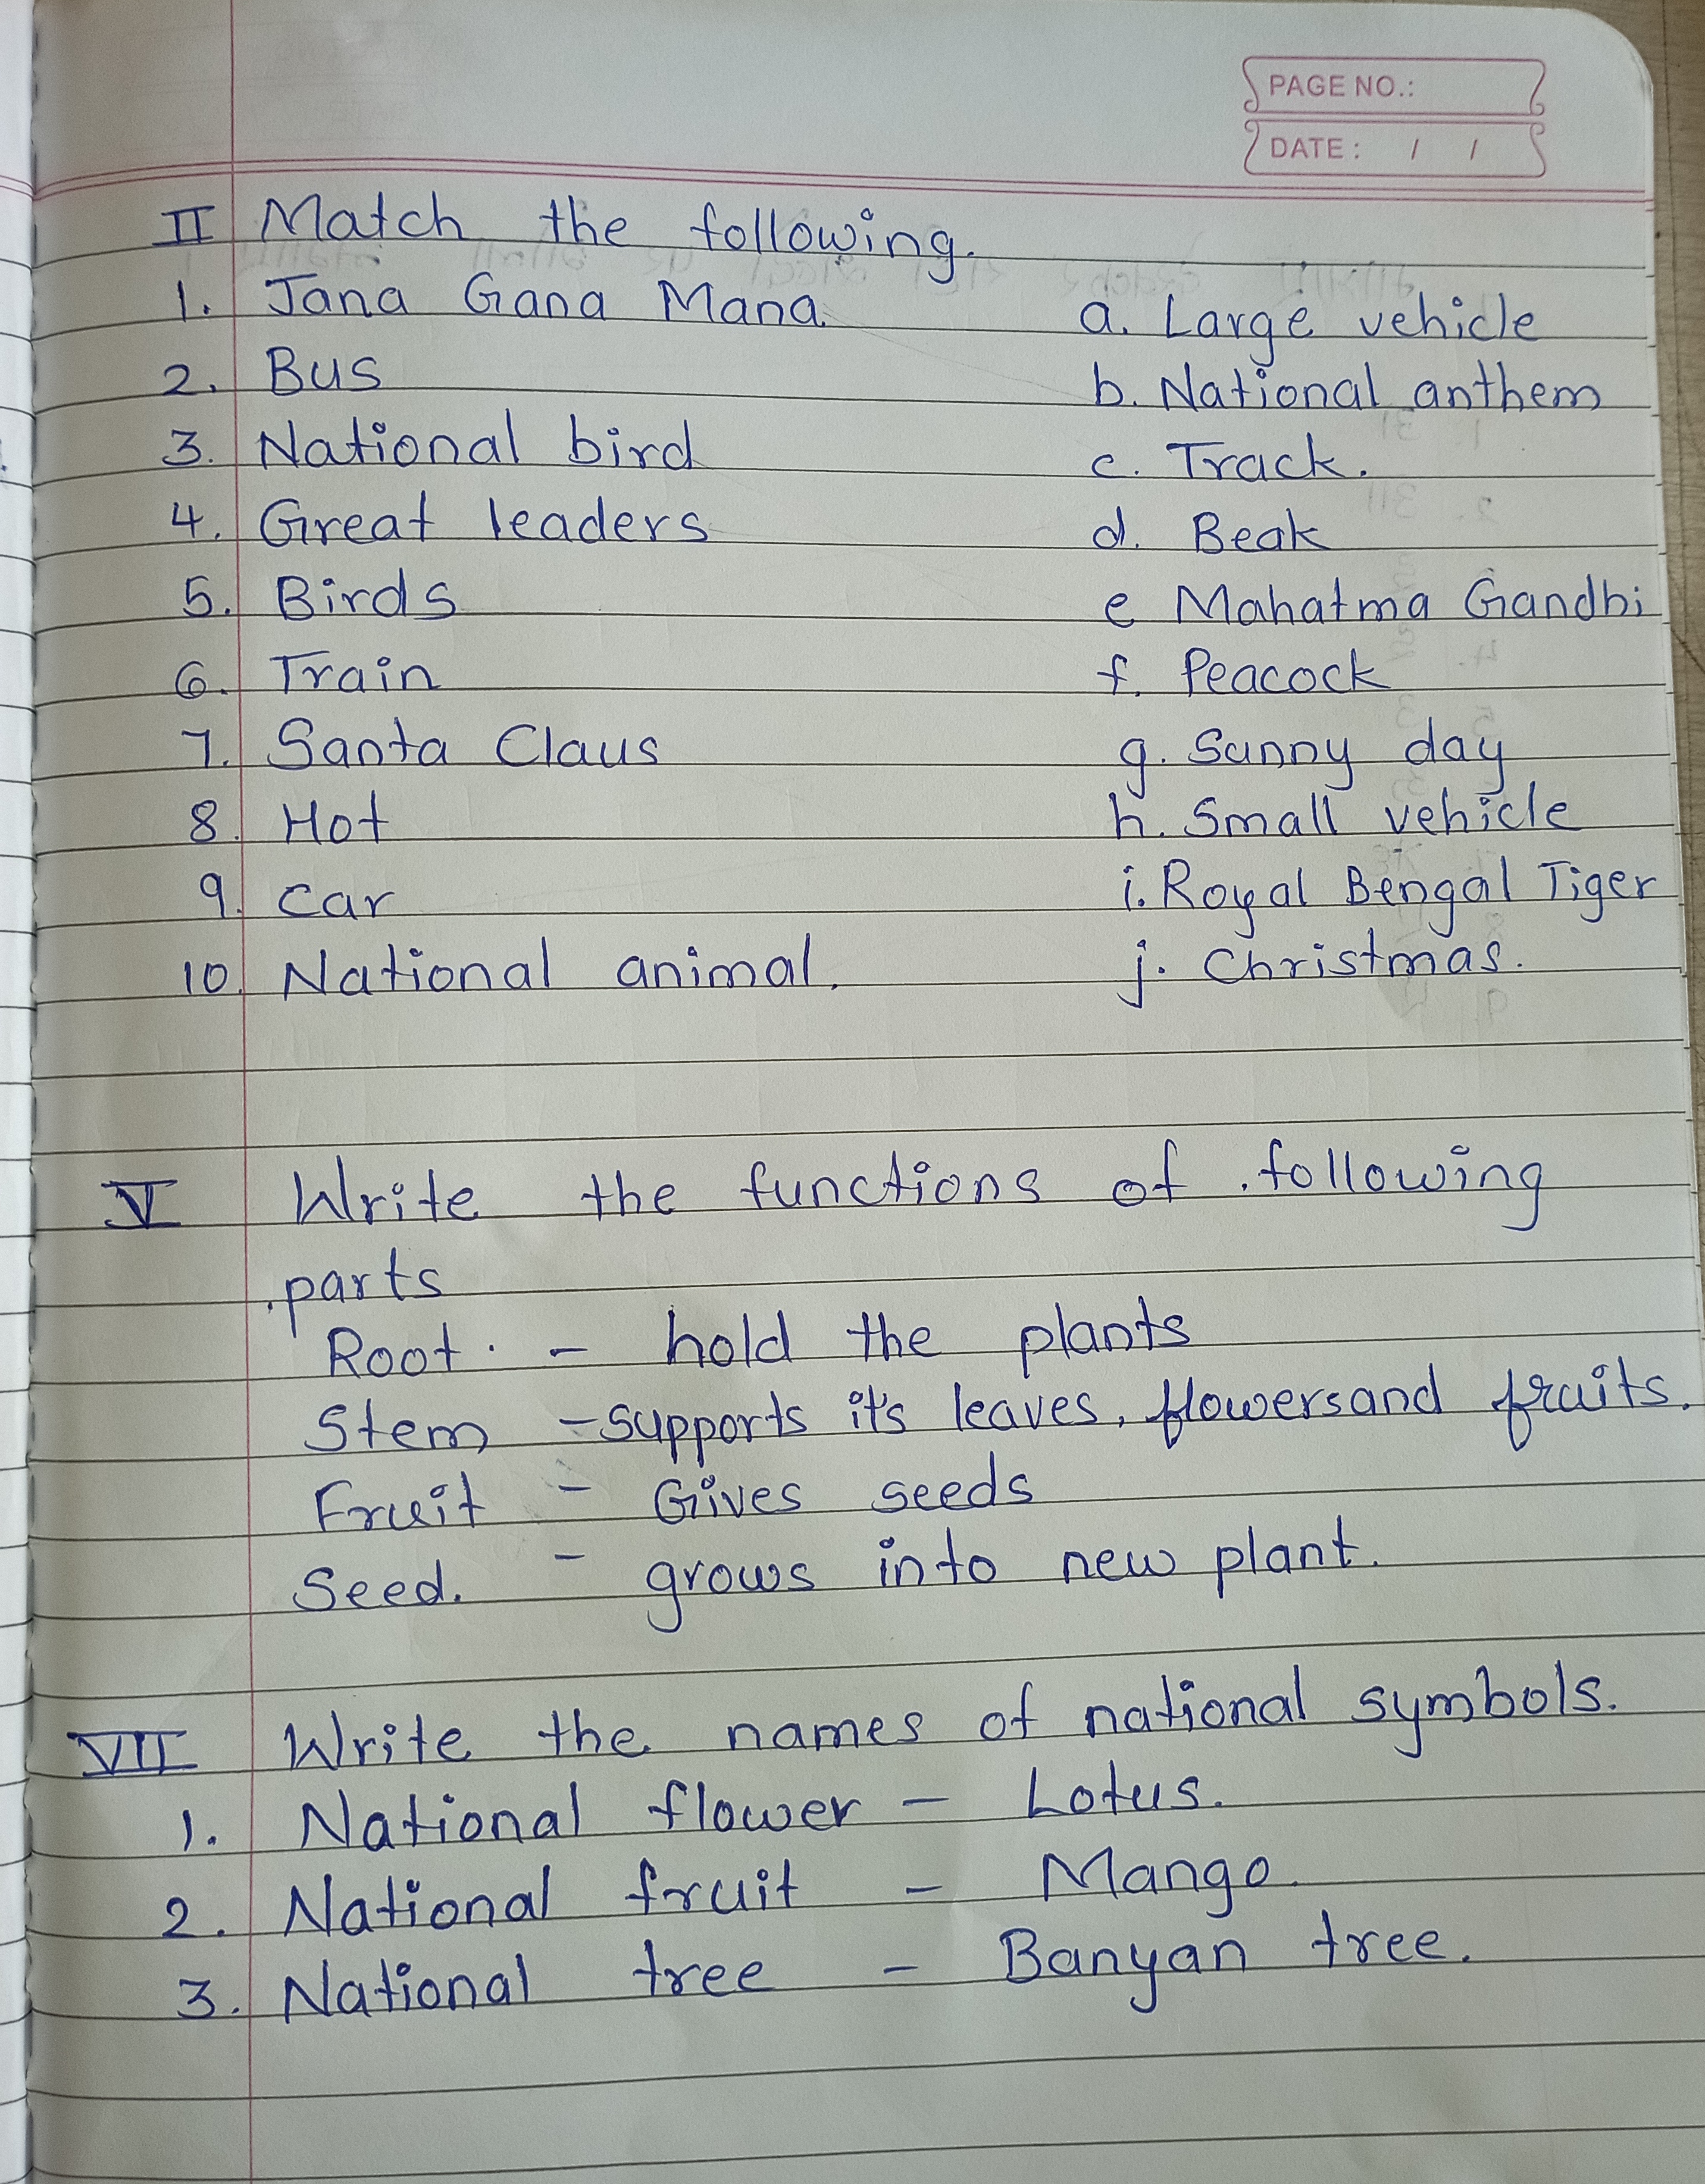 PAGE NO.:
DATE: / /
II Match the following.
1. Jana Gana Mana. a. Large vehicle
2. Bus b. National anthem
3. National bird c. Track.
4. Great leaders d. Beak
5. Birds e Mahatma Gandhi
6. Train f. Peacock
7. Santa Claus g. Sunny day
8. Hot h. Small vehicle
9. Car i. Royal Bengal Tiger
10. National animal. j. Christmas.
V Write the functions of following
parts
Root. - hold the plants
Stem - supports it's leaves, flowers and fruits.
Fruit - Gives seeds
Seed. - grows into new plant.
VII Write the names of national symbols.
1. National flower - Lotus.
2. National fruit - Mango.
3. National tree - Banyan tree.